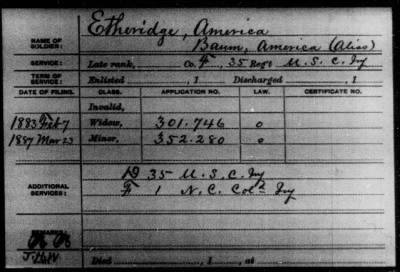 Etheridge, America
NAME OF SOLDIER: Baum, America (Alias)
SERVICE: Late rank, Co. F, 35 Regt U. S. C. Iy
TERM OF SERVICE: Enlisted , 1 Discharged , 1
DATE OF FILING. CLASS. APPLICATION NO. LAW. CERTIFICATE NO.
Invalid,
1883 Feb 7 Widow, 301.746 o
1887 Mar 23 Minor, 352.280 o
D 35 U. S. C. Iy
ADDITIONAL SERVICES: F 1 N. C. Cold Iy
REMARKS:
J.H.W. Died , 1 , at